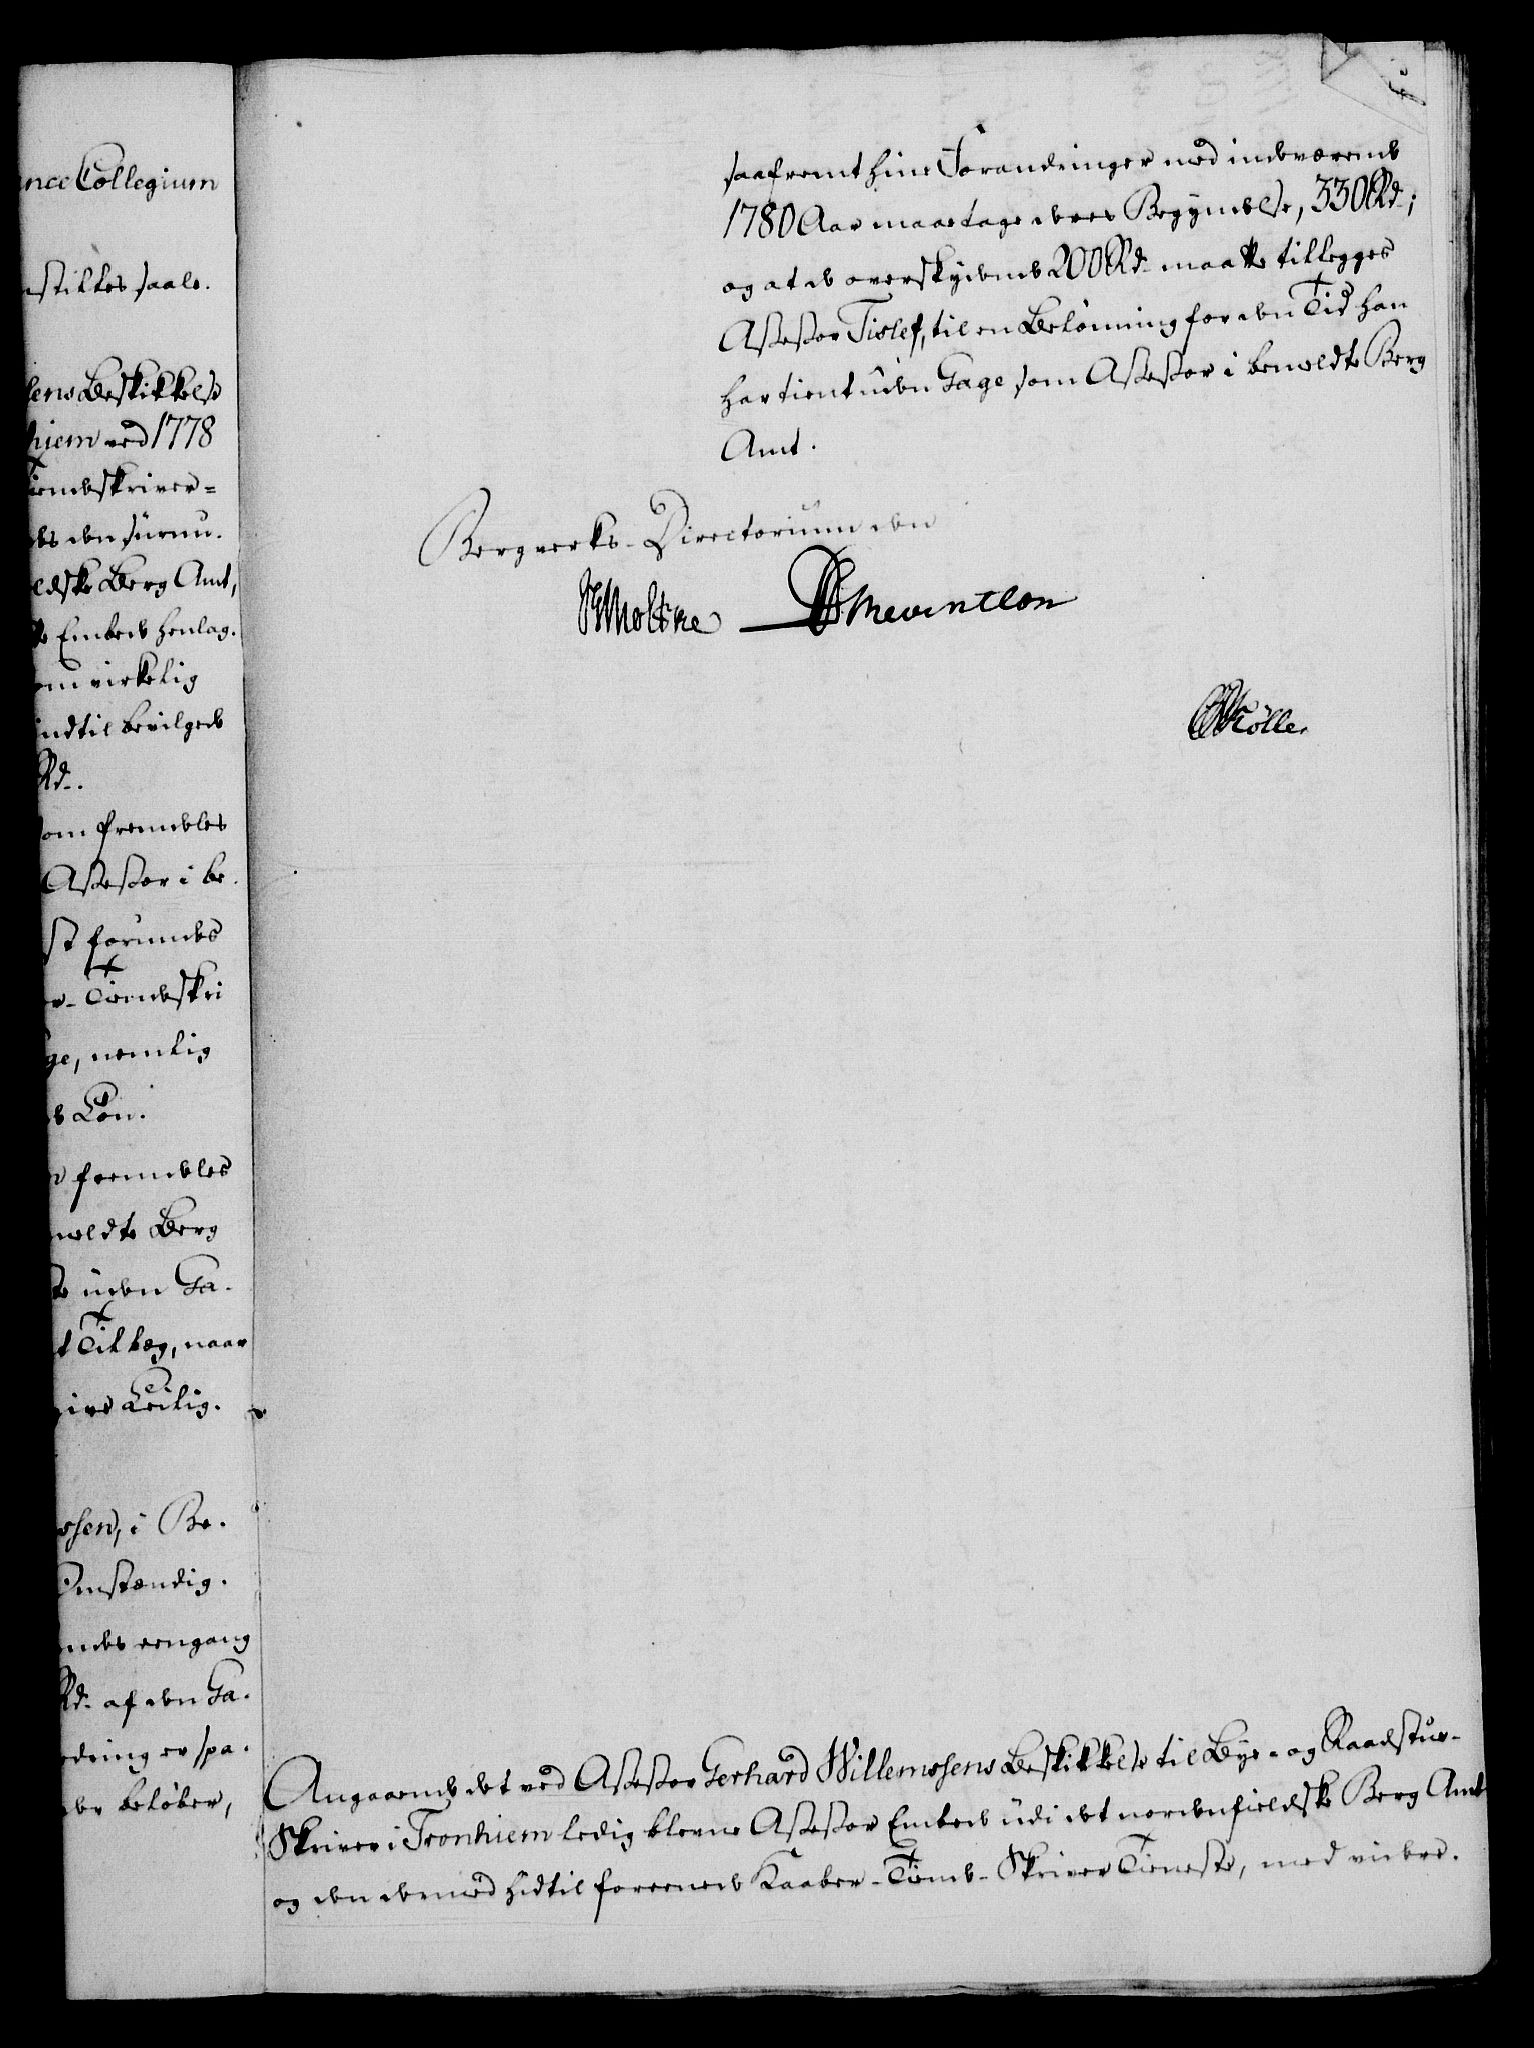 nce Collegium
nstilkes saale.
lens Beskikkelse
hiem ved 1778
Tiendeskriver=
des den surnu.
eldske Berg Amt,
te Embede henlag.
om virkelig
indtil bevilgede
Rd.
som fremdeles
Assessor i be.
st forundes
er-Tiendeskri
ge, nemlig
de Løn.
n fremdeles
meldte Berg
te uden Ga.
t Tillæg, naar
give Leilig.
ssen, i Be.
Omstændig.
ndes eengang
Rd. af den Ga.
edring er spa.
der beløber,
saafremt hine Forandringer med indeværende
1780 Aar maae tage deres Begyndelse, 330 Rd.;
og at de overskydende 200 Rd. maatte tillegges
Assessor Tislef, til en Belønning for den Tid han
har tient uden Gage som Assessor i bemeldte Berg
Amt.
Bergverks-Directorium den
Moltke Reventlou
Rölle
Angaaende det ved Assessor Gerhard Willemsens Beskikkelse til Bye- og Raadstue-
Skriver i Tronhiem ledig blevne Assessor Embede udi det nordenfieldske Berg Amt
og den dermed hidtil foreenede Kaaber-Tiende-Skriver Tieneste, med videre.